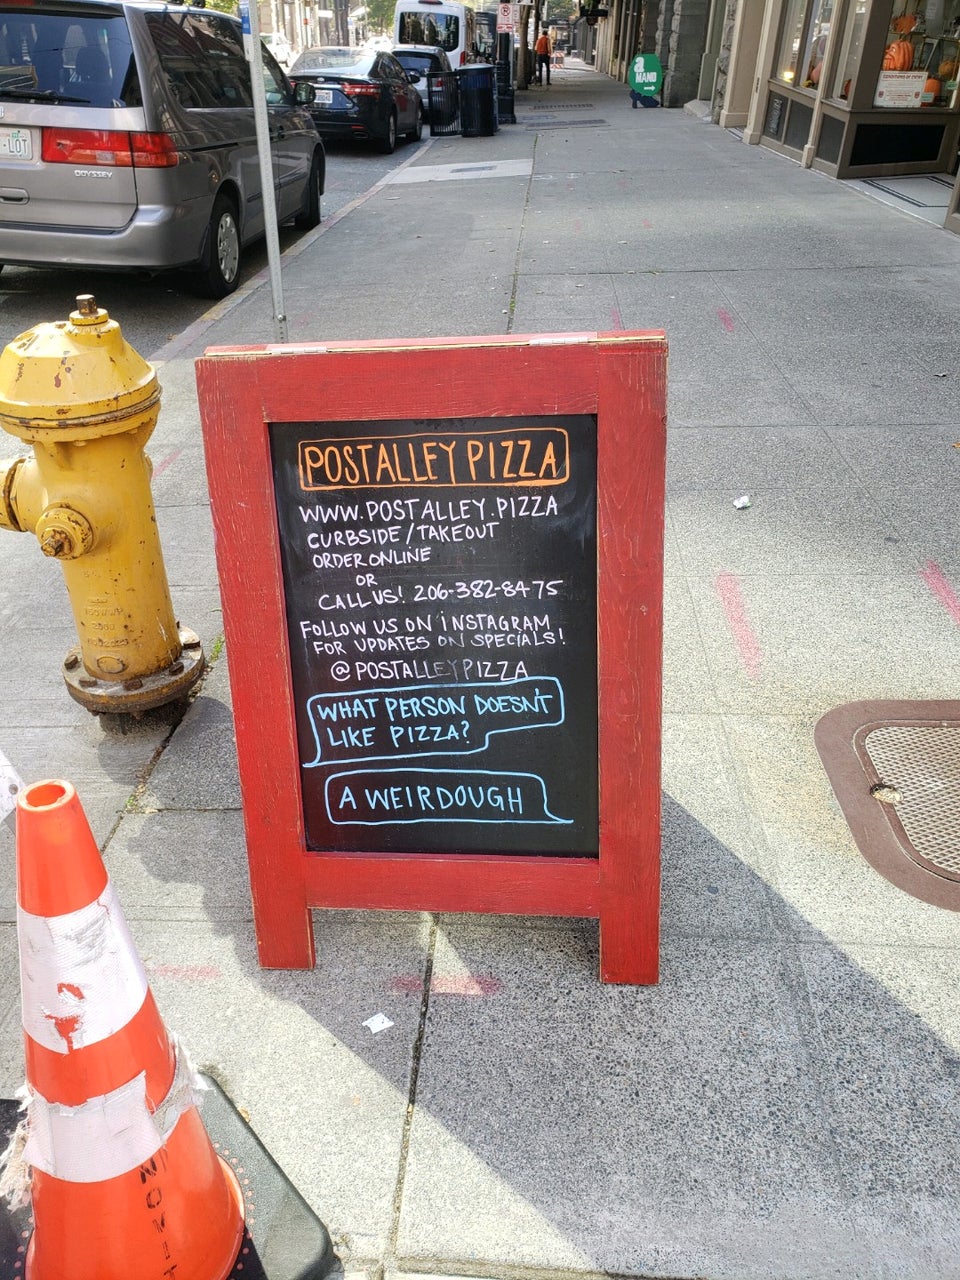 POSTALLEY PIZZA
WWW.POSTALLEY.PIZZA
CURBSIDE/TAKEOUT
ORDER ONLINE
OR
CALL US! 206-382-8475
FOLLOW US ON INSTAGRAM
FOR UPDATES ON SPECIALS!
@POSTALLEYPIZZA
WHAT PERSON DOESN'T
LIKE PIZZA?
A WEIRDOUGH
ODYSSEY
-LOT
MAND
CONDITIONS OF ENTRY